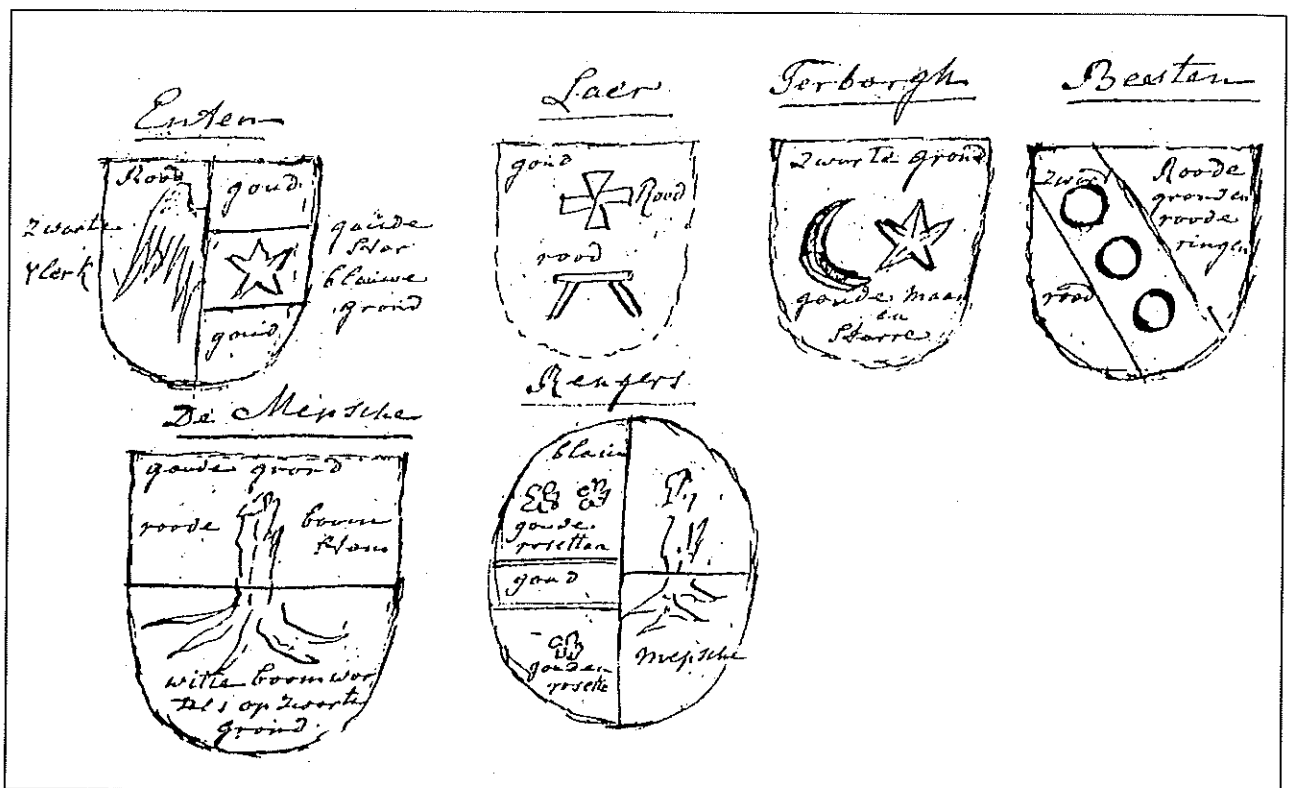 Enten
Rood
goud
zwarte
vlerk
goude
star
blauwe
grond
goud
Laer
goud
Rood
rood
Terborgh
Zwarte grond
goude maan
en
Starre
Beesten
Roode
grond en
roode
ringen
rood
De Mepsche
goude grond
roode boom
stam
witte boomwor
tels op zwarte
grond
Rengers
blauw
goude
rosetten
goud
gouden
rosette
Mepsche